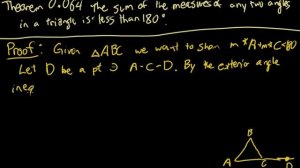 Theorem 0.064 The sum of the measures of any two angles
in a triangle is less than 180°.
Proof: Given △ABC we want to show m∡A+m∡C<180
Let D be a pt ∋ A-C-D. By the exterior angle
ineq
B
A C D